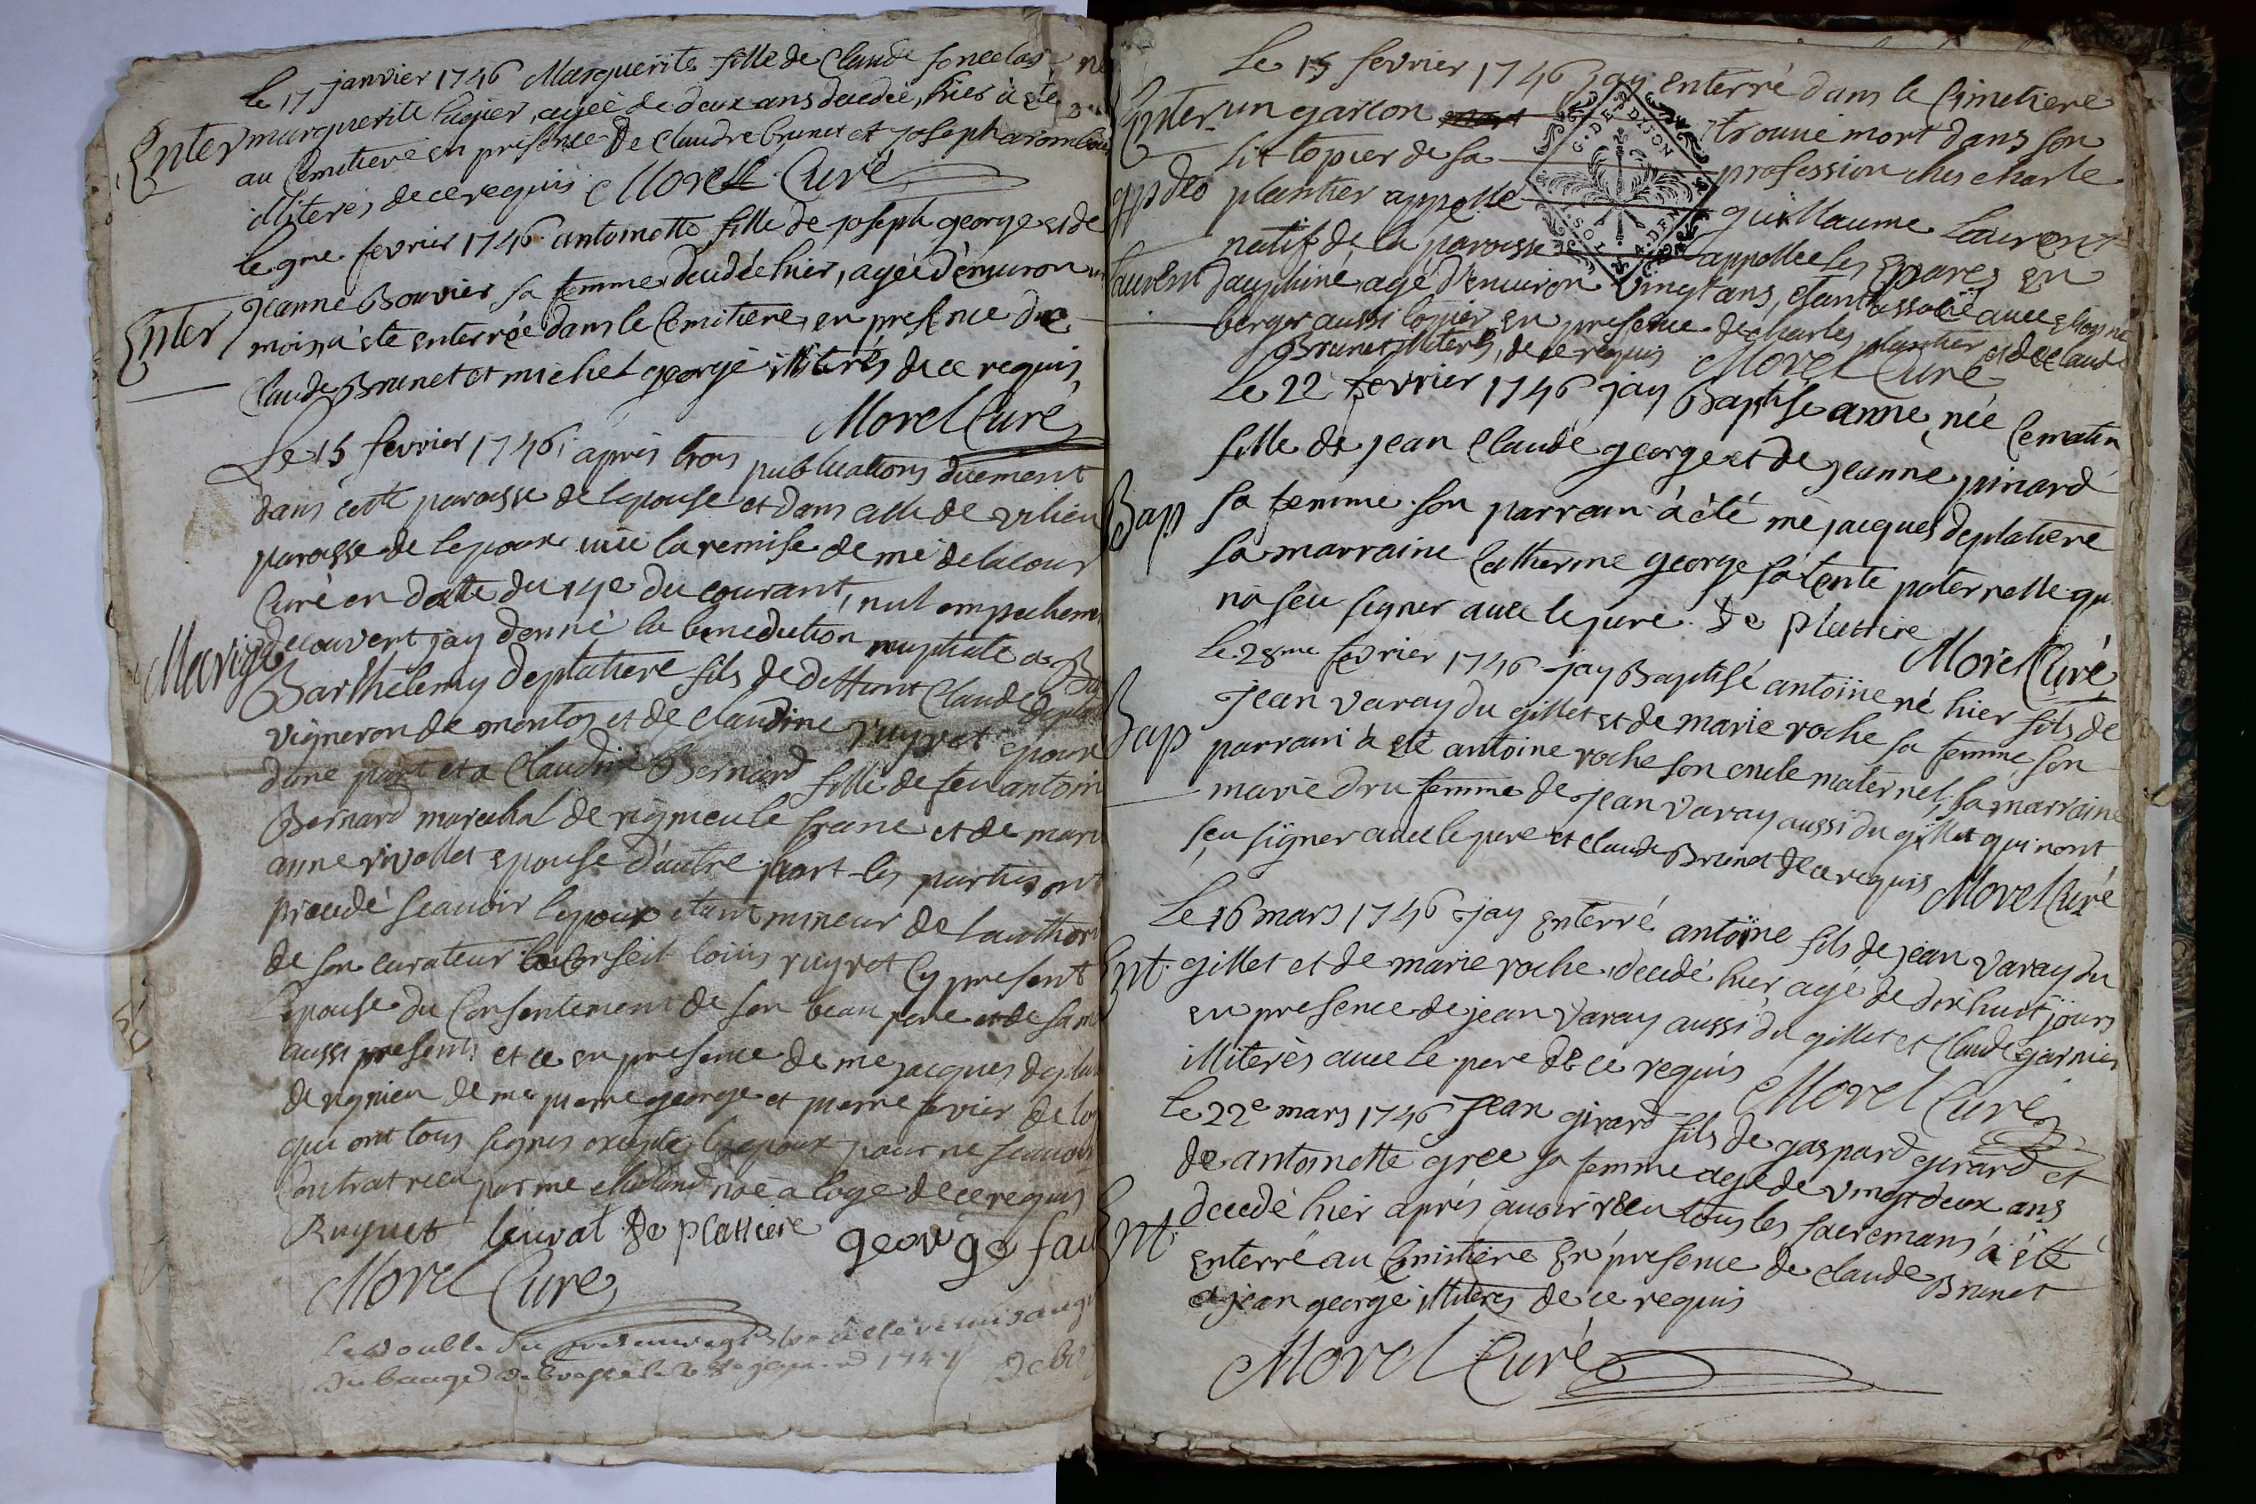 Le 17 janvier 1746 Marguerite fille de Claude
Enter marguerite lagier, agée de deux ans decedée, hier à été
au Cemitiere en presence de Claudre brunet et joseph
illiterés de ce requis Morel Curé
le 9me fevrier 1746 antoinette fille de joseph george et de
jeanne Bouvier sa femme decedée hier, agée d'environ un
Enter mois, à été enterrée dans le Cemitiere, en presence de
Claude Brunet et michel george illiterés de ce requis
Morel Curé
Le 15 fevrier 1746, aprés trois publications duement
dans cette paroisse de l'epouse et dans celle de vilieu
paroisse de lepoux vüe la remise de mᵉ delacour
Curé en datte du 14e du courant, nul empechem
Mariage decouvert jay donné la benediction nuptiale a
Barthelemy deplatiere fils de deffunt Claude
vigneron de montos et de Claudine ruyret epoux
dune part et a Claudine Bernard fille de feu antoin
Bernard marechal de rigneu le franc et de mari
anne rivollet epouse d'autre part les parties ont
procedé scavoir lepoux etant mineur de lauthori
de son curateur loüis ruyret cy present
lepouse du consentement de son beau pere et de sa m
aussi presents et ce en presence de me jacques depla
de rignieu de me pierre george et pierre fevier de
qui ont tous signés excepté lepoux pour ne scavoir
Contrat receu par me noe a loye de ce requis
Ruyret De plattiere george fau
Morel Curé
Le double du a été remis au gr
du 1747
Le 15 fevrier 1746 jay enterré dans le Cimetiere
Enter un garcon trouué mort dans son
lit topier de sa profession ches charle
plantier appellé guillaume Laurent
natif de la paroisse appellée les Epares en
laurent dauphiné, agé d'environ vingt ans, etant associé avec
berger aussi topier en presence de charles plantier et de claude
Brunet illiterés, de ce requis Morel Curé
Le 22 fevrier 1746 jay Baptisé anne, née Cematin
fille de jean Claude george et de jeanne pinard
Bap sa femme. son parrain à été me jacques deplatiere
sa marraine Catherine george sa tente paternelle qu
nà seu signer avec le pere. De plattiere Morel Curé
Le 28me fevrier 1746 jay Baptisé antoine né hier fils de
jean varay du gillet et de marie roche sa femme, son
Bap parrain à eté antoine roche son oncle maternel, sa marraine
marie dru femme de jean varay aussi du gillet qui nont
seu signer avec le pere et Claude Brunet de ce requis Morel Curé
Le 16 mars 1746 jay enterré antoine fils de jean varay du
Ent. gillet et de marie roche, decedé hier, agé de dix huit jours
en presence de jean varay aussi du gillet et Claude garnier
illiterés avec le pere de ce requis Morel Curé
Le 22e mars 1746 jean girard fils de gaspard girard et
de antoinette gree sa femme agé de vingt deux ans
Ent. decedé hier aprés avoir reçu tous les sacremans à été
enterré au Cemitiere En presence de claude Brunet
et jean george illiterés de ce requis
Morel Curé